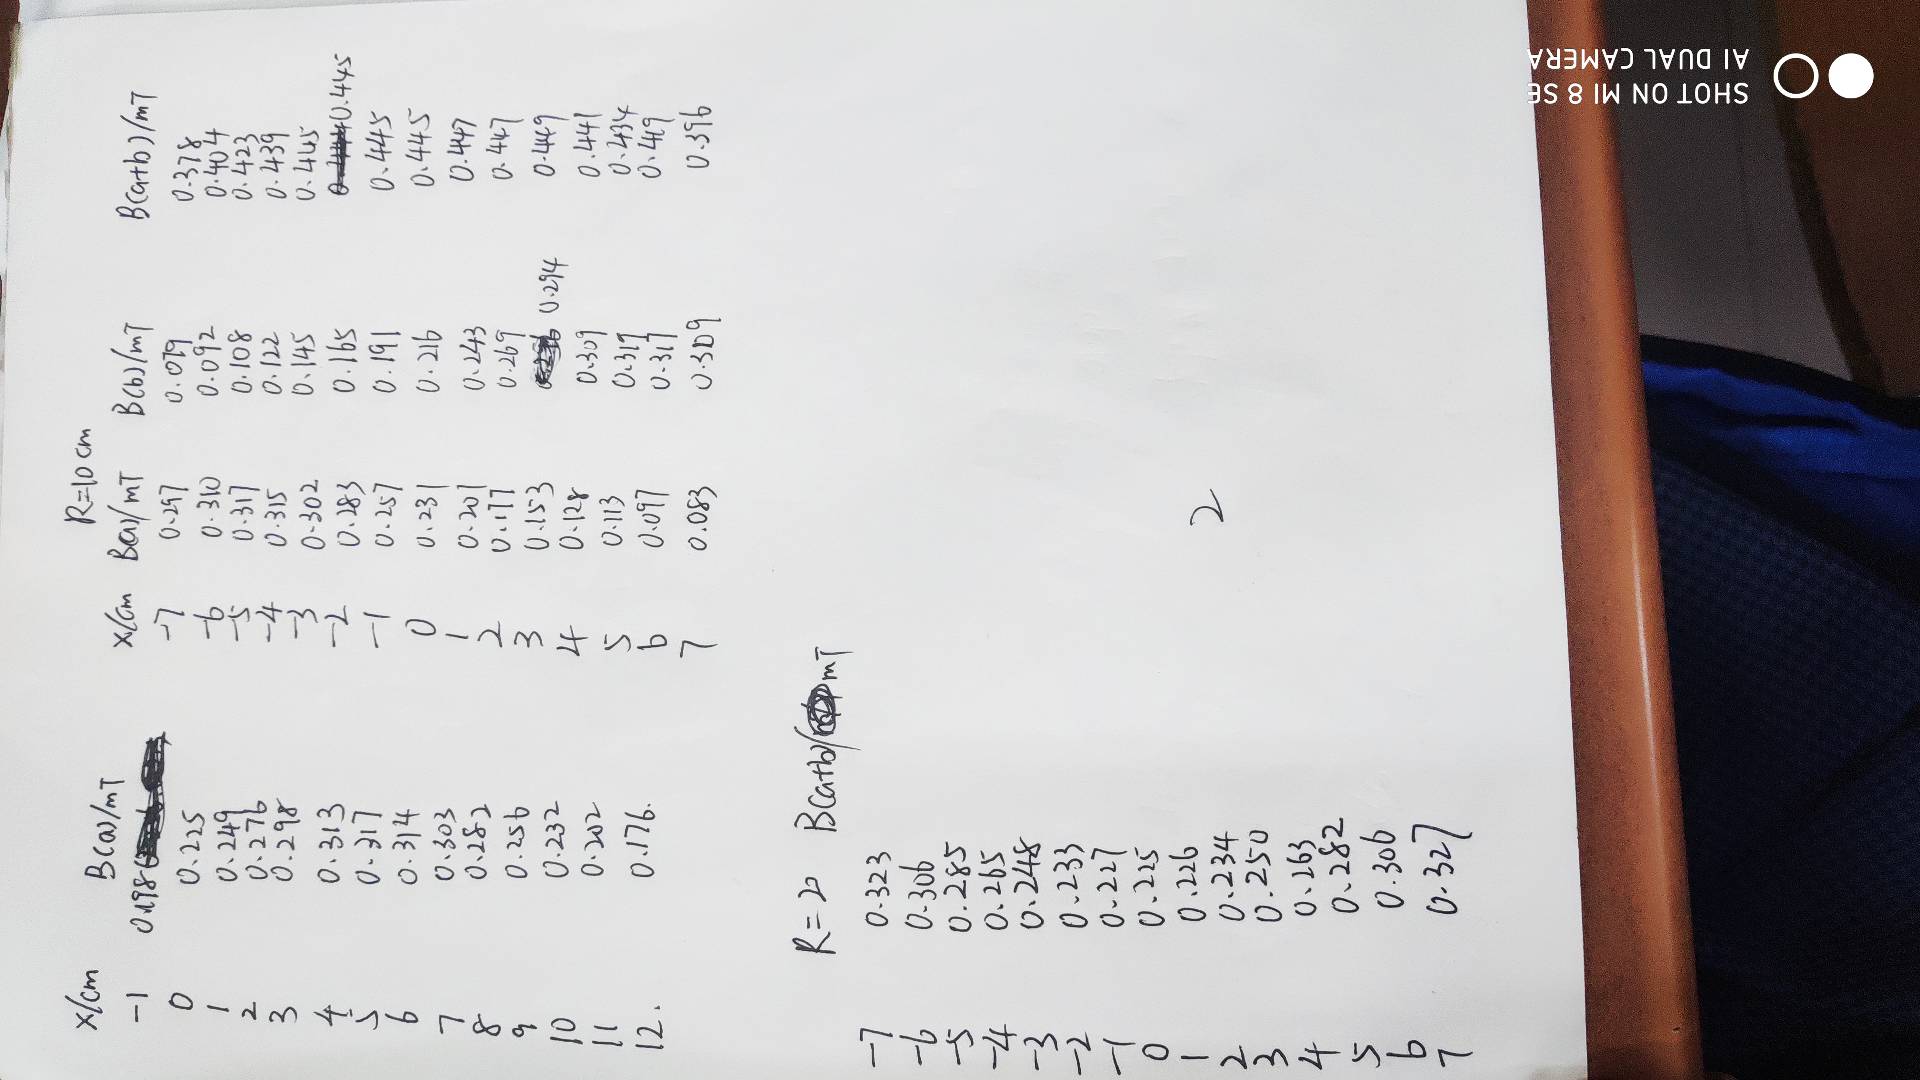 x/cm B(a)/mT
-1 0.198
0 0.225
1 0.249
2 0.276
3 0.298
4 0.313
5 0.317
6 0.314
7 0.303
8 0.282
9 0.256
10 0.232
11 0.202
12. 0.176.
R=10cm
x/cm B(a)/mT B(b)/mT B(a+b)/mT
-7 0.297 0.079 0.378
-6 0.310 0.092 0.404
-5 0.317 0.108 0.423
-4 0.315 0.122 0.439
-3 0.302 0.145 0.445
-2 0.283 0.165 0.445
-1 0.257 0.191 0.445
0 0.231 0.216 0.445
1 0.201 0.243 0.447
2 0.177 0.269 0.447
3 0.153 0.294 0.449
4 0.128 0.309 0.441
5 0.113 0.319 0.434
6 0.097 0.317 0.419
7 0.083 0.309 0.396
R= B(a+b)/mT
-7 0.323
-6 0.306
-5 0.285
-4 0.265
-3 0.248
-2 0.233
-1 0.227
0 0.225
1 0.226
2 0.234
3 0.250
4 0.263
5 0.282
6 0.306
7 0.327
2
SHOT ON MI 8 SE
AI DUAL CAMERA